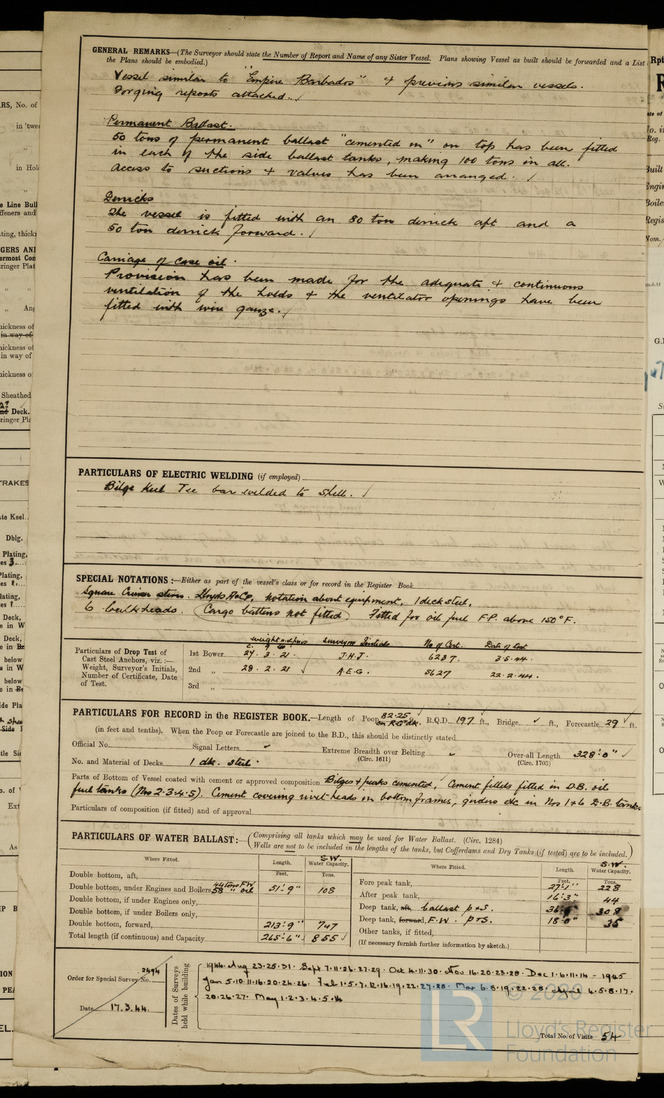 GENERAL REMARKS—(The Surveyor should state the Number of Report and Name of any Sister Vessel. Plans showing Vessel as built should be forwarded and a List
the Plans should be embodied.)
Vessel similar to "Empire Barbados" & previous similar vessels.
Forging reports attached.
Permanent Ballast.
50 tons of permanent ballast "cemented in" on top has been fitted
in each of the side ballast tanks, making 100 tons in all.
Access to suctions & valves has been arranged.
Derricks
The vessel is fitted with an 80 ton derrick aft and a
50 ton derrick forward.
Carriage of case oil.
Provision has been made for the adequate & continuous
ventilation of the holds & the ventilator openings have been
fitted with wire gauze.
PARTICULARS OF ELECTRIC WELDING (if employed)
Bilge Keel Tee bar welded to shell.
SPECIAL NOTATIONS:—Either as part of the vessel's class or for record in the Register Book
Square Cruiser stern. Lloyds A&CP, notation about equipment, 1 deck steel,
6 bulkheads. (Cargo battens not fitted) Fitted for oil fuel F.P. above 150°F.
weight of Surveyors Initials No of Cert. Date of Test
Particulars of Drop Test of
Cast Steel Anchors, viz.—
Weight, Surveyor's Initials,
Number of Certificate, Date
of Test.
1st Bower 27. 3. 21 J.H.J. 6287 3.5.44
2nd „ 28. 2. 21 A.E.G. 5627 22.2.44.
3rd „
PARTICULARS FOR RECORD in the REGISTER BOOK.—Length of Poop 82.25 ft., R.Q.D. 197 ft., Bridge ft., Forecastle 29 ft.
(in feet and tenths). When the Poop or Forecastle are joined to the B.D., this should be distinctly stated
Official No. Signal Letters Extreme Breadth over Belting Over-all Length 328'0"
(Circ. 1611) (Circ. 1703)
No. and Material of Decks 1 dk. steel.
Parts of Bottom of Vessel coated with cement or approved composition Bilges & peaks cemented, Cement fillets fitted in D.B. oil
fuel tanks (Nos 2.3.4.5). Cement covering rivet heads in bottom frames, girders etc in Nos 1 & 6 D.B. tanks.
Particulars of composition (if fitted) and of approval
PARTICULARS OF WATER BALLAST:—(Comprising all tanks which may be used for Water Ballast. (Circ. 1284)
Wells are not to be included in the lengths of the tanks, but Cofferdams and Dry Tanks (if tested) are to be included.)
Where Fitted. Length. S.W. Water Capacity. Where Fitted. Length. S.W. Water Capacity.
Feet. Tons. Feet. Tons.
Double bottom, aft, Fore peak tank, 27'1" 228
Double bottom, under Engines and Boilers 51'9" 108 After peak tank, 16'3" 44
Double bottom, if under Engines only, Deep tank, aft, ballast p&s. 308
Double bottom, if under Boilers only, Deep tank, forward, F.W. p&s. 18'0" 36
Double bottom, forward, 213'9" 747 Other tanks, if fitted,
Total length (if continuous) and Capacity 265'6" 855 (If necessary furnish further information by sketch.)
Order for Special Survey No. 2494
Date 17.3.44.
Dates of Surveys held while building
1944 Aug 23.25.31. Sept 7.11.26.27.29. Oct 4.11.30. Nov 16.20.23.28. Dec 1.6.11.14 - 1945
Jan 5.10.11.16.20.24.26. Feb 1.5.7.12.16.19.22.27.28. Mar 6.8.19.22.28. April 4.5.8.17.
20.26.27. May 1.2.3.4.5.14
Total No. of Visits 54
© 2020
Lloyd's Register
Foundation
LR